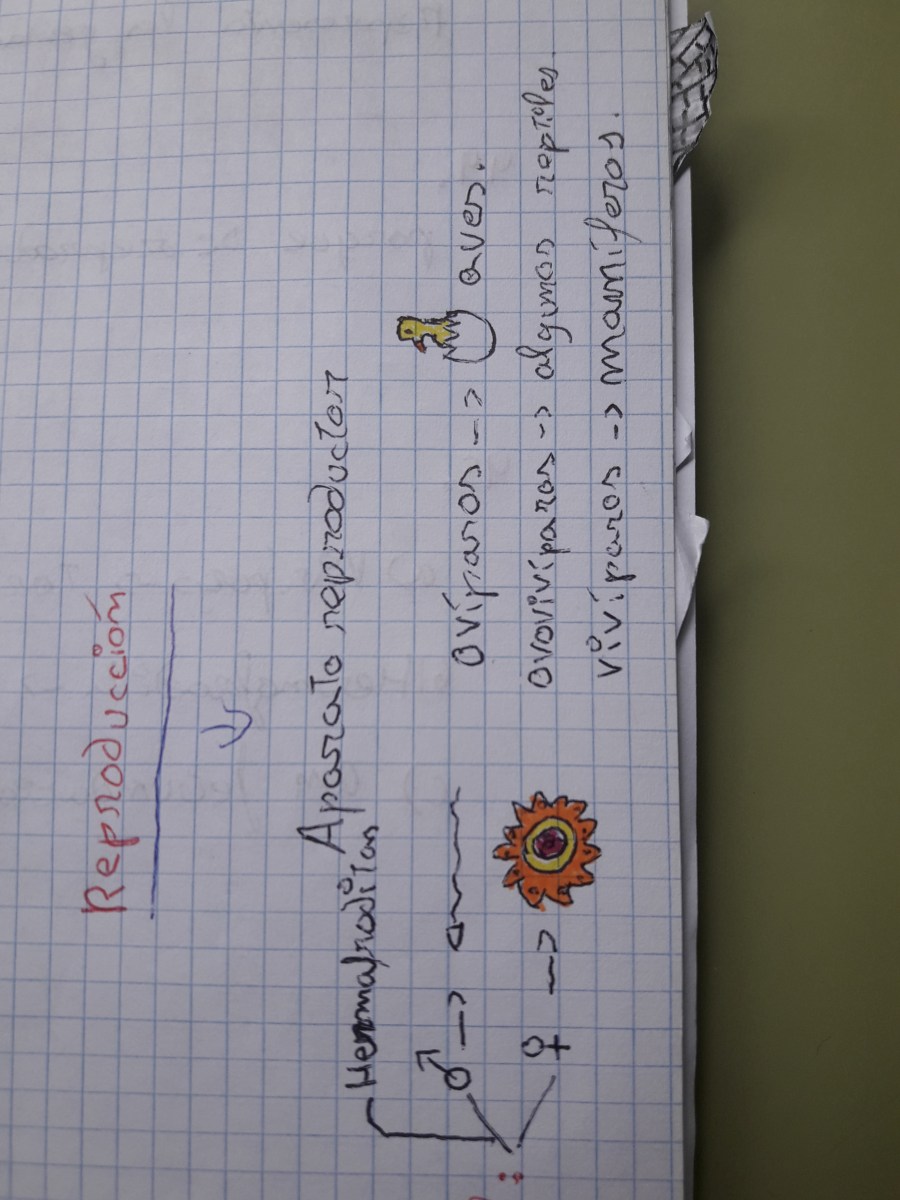 Reproducción
Aparato reproductor
Hermafroditas
♂ ->
♀ ->
ovíparos -> aves.
ovovivíparos -> algunos reptiles.
vivíparos -> mamíferos.